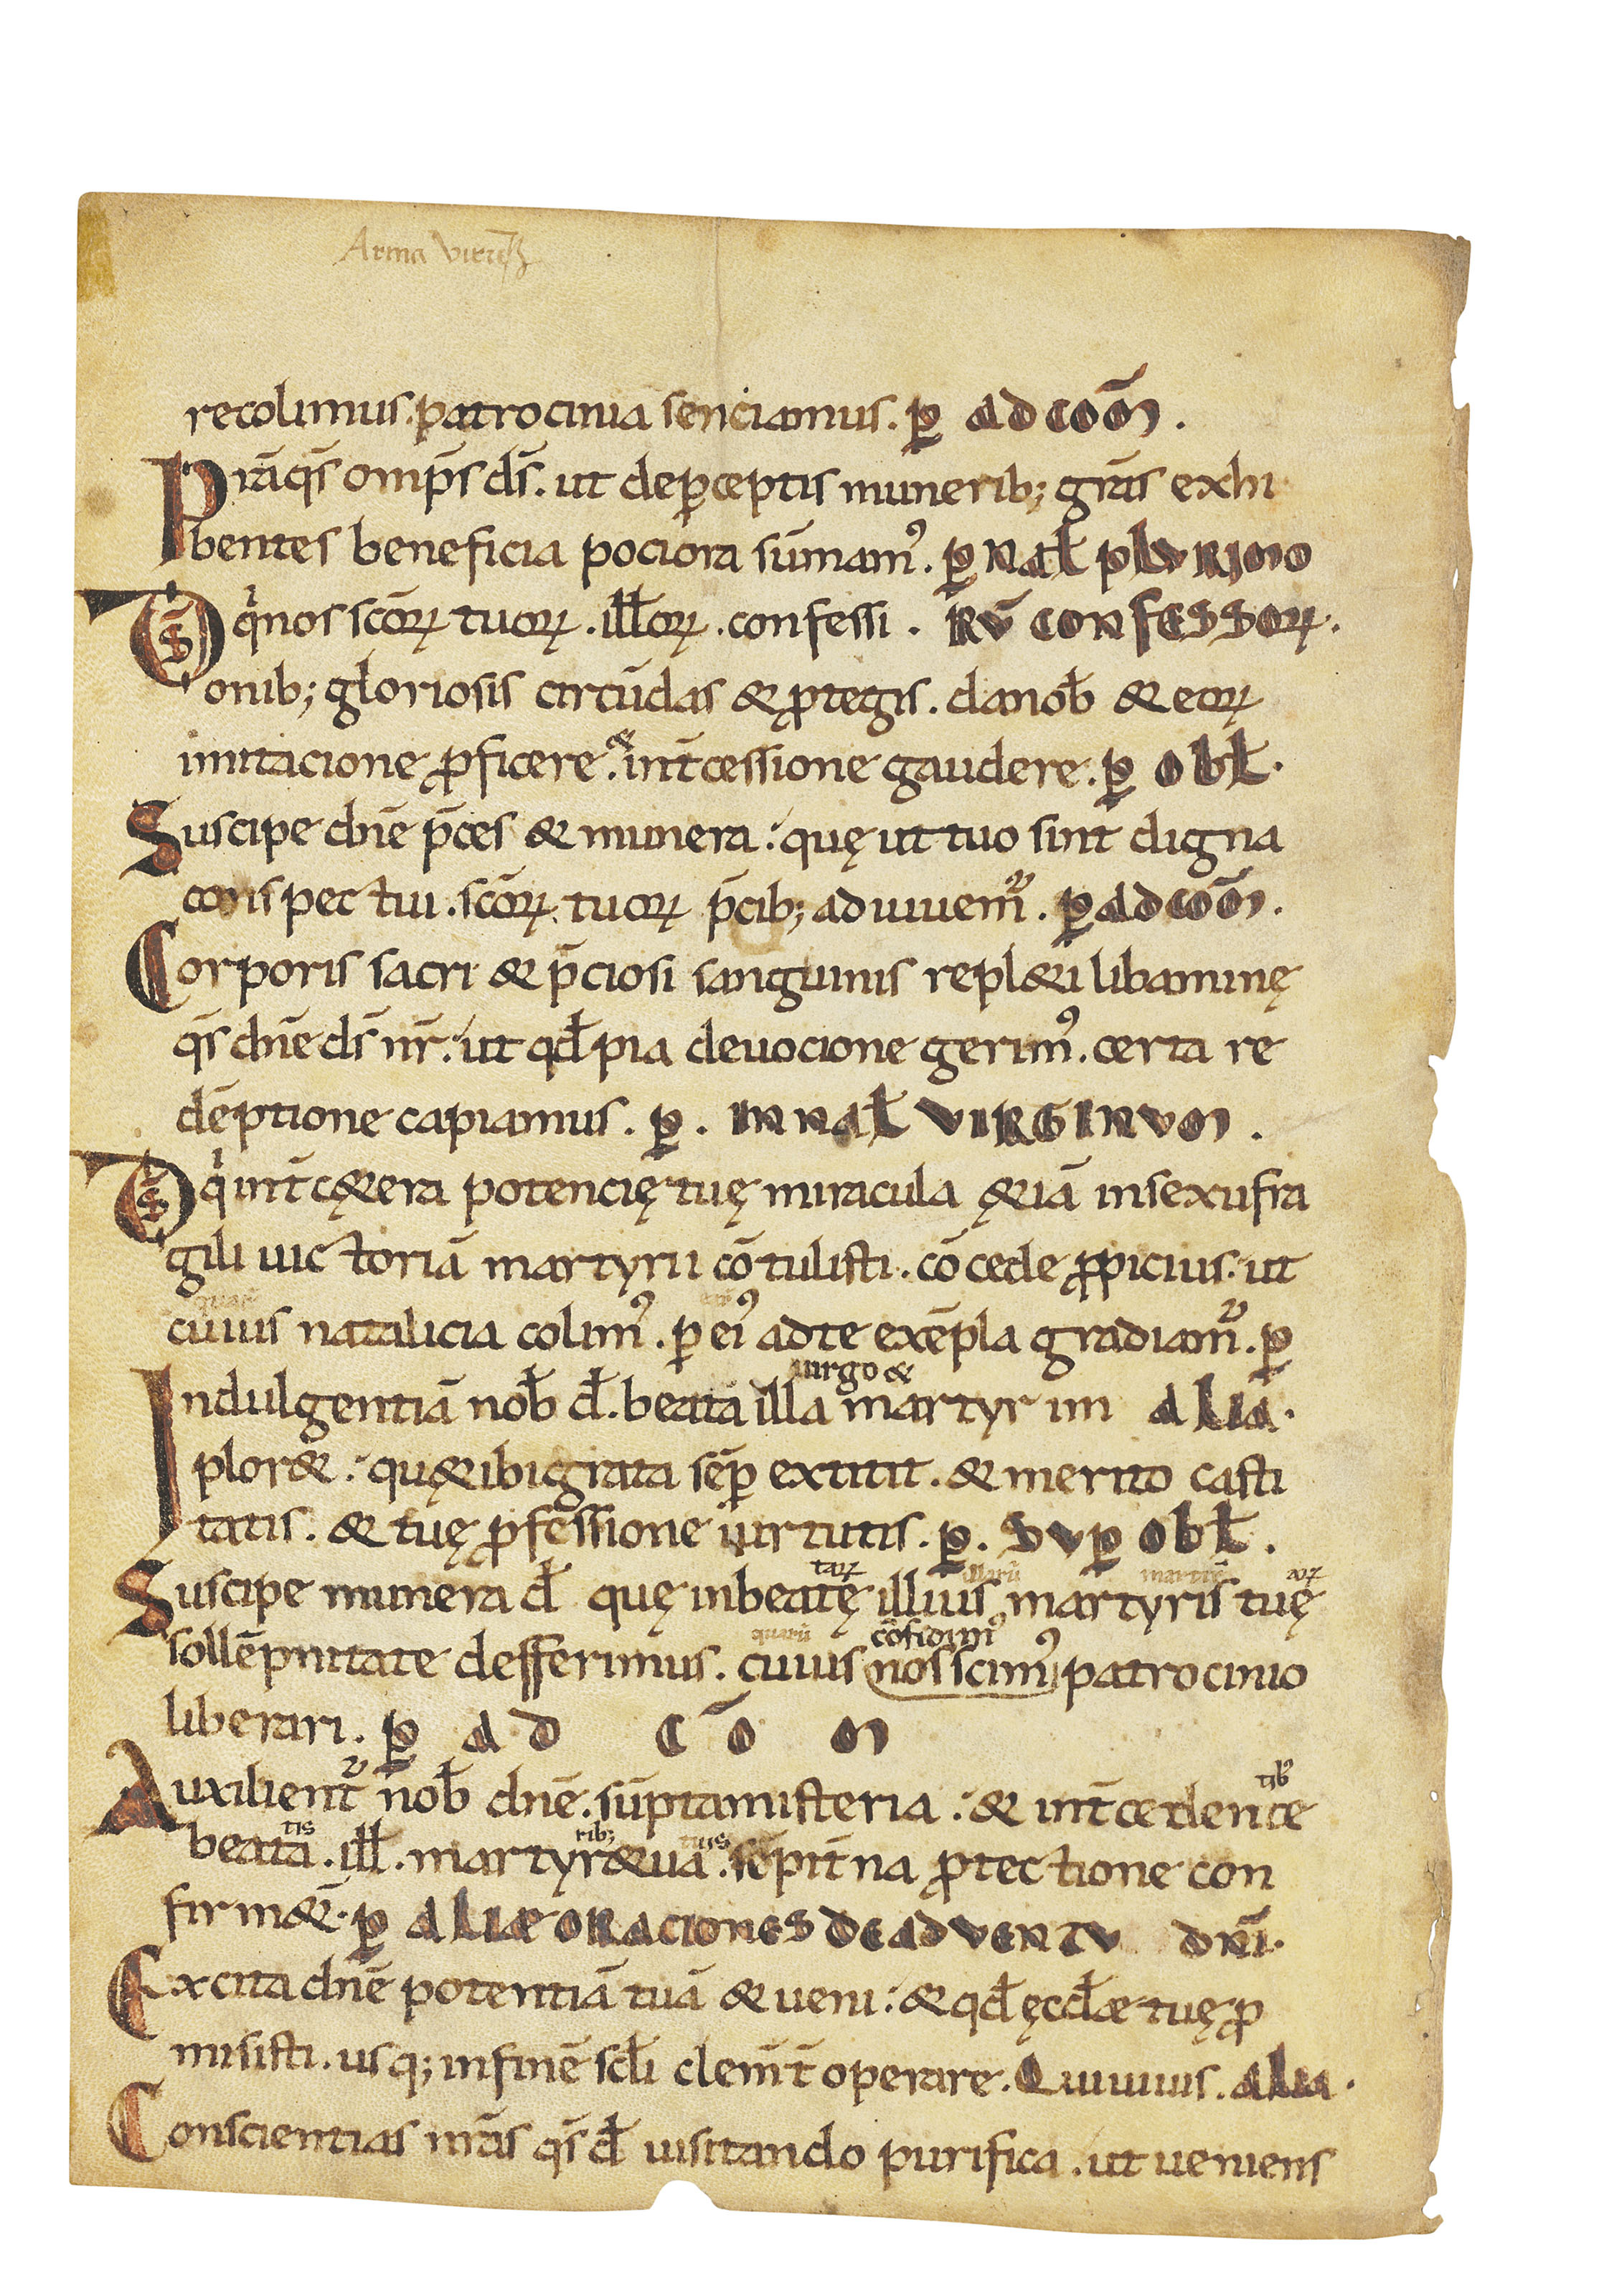 Arma
recolimus. patrocinia senciamus. ꝑ ADCOM̄.
P rā q̄s omp̄s ds̄. ut deꝑceptis munerib; grās exhi
bentes beneficia pociora sūmamꝰ. ꝑ NAŁ PLURIMO
Ds̄ qͥ nos scōꝝ tuoꝝ. illoꝝ. confessi. RŪ CONFESSOꝝ.
onib; gloriosis circūdas & ꝓtegis. danob̄ & eoꝝ
imitacione ꝓficere. & int̄cessione gaudere. ꝑ OBŁ.
Suscipe dn̄e p̄ces & munera: quę ut tuo sint digna
conspectui. scōꝝ. tuoꝝ p̄cib; adiuuemᷣ. ꝑ ADCOM̄.
Corporis sacri & p̄ciosi sanguinis repl&i libaminę
q̄s dn̄e ds̄ nr̄: ut qđ pia deuocione gerimꝰ. certa re
dēptione capiamus. ꝑ. IN NAŁ VIRGINUM.
Ds̄ qͥ int̄ cę&era potencię tuę miracula ę&iā insexufra
gili uictoriā martyrii cōtulisti. cōcede ꝓpicius. ut
quarū
cuius natalicia colimꝰ. ꝑ eiꝰ adte exēpla gradiamᷣ. ꝑ
uirgo &
Indulgentiā nob̄ đ. beata illa martyr im ALIA.
plor&: quę&ibi grata sēꝑ extitit. & merito casti
tatis. & tuę ꝓfessione uirtutis. ꝑ. SUꝑ OBŁ.
taꝝ illarū martirū aꝝ
Suscipe munera đ quę inbeatę illius martyris tuę
quarū cōfidimꝰ
sollēpnitate defferimus. cuius nos scimꝰ patrocinio
liberari. ꝑ AD CŌM
tibꝰ
Auxilientᷣ nob̄ dn̄e. sūptamisteria: & int̄cedente
tis rib; tuis
beata. ill̄. martyr&ua. sēpit̄na ꝓtectione con
firm&. ꝑ ALIÆ ORACIONES DE ADVENTU DNĪ.
Excita dn̄e potentiā tuā & ueni: & qđ ęcclæ tuę ꝓ
misisti. usq; infinē scł̄i clem̄t̄ operare. Quiuiuis. ALIA.
Conscientias nrās q̄s đ uisitando purifica. ut ueniens